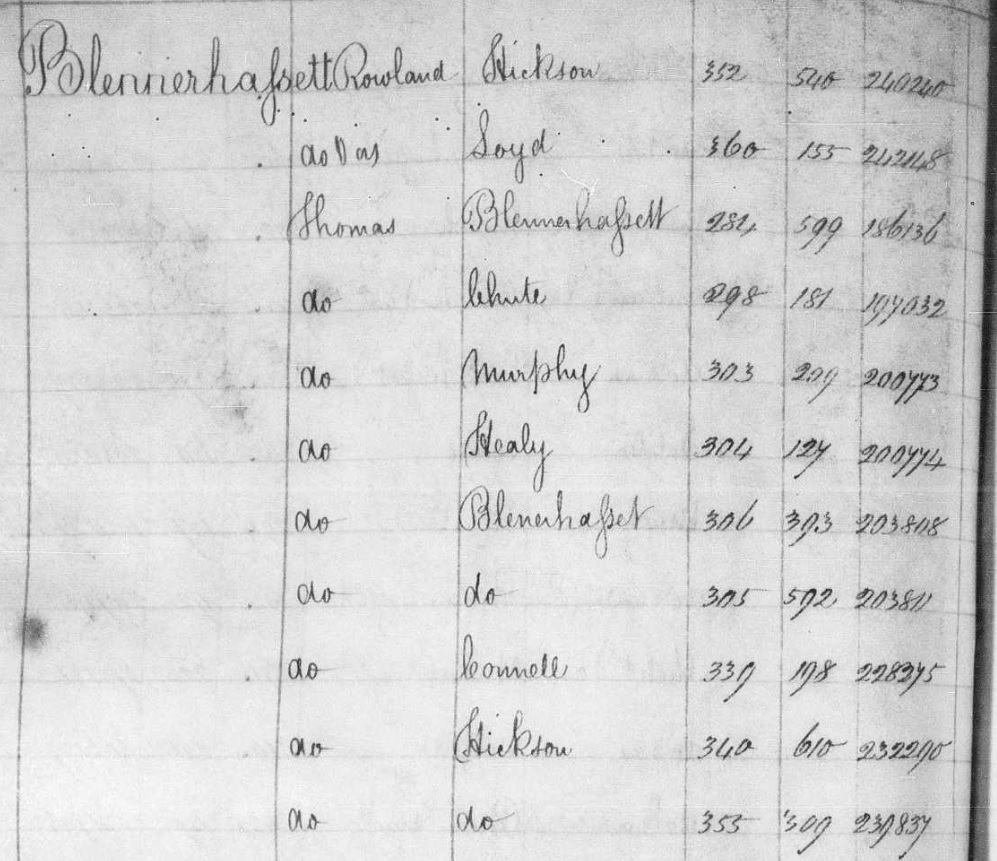 Blennerhassett Rowland Hickson 352 540 240240
do Vas Loyd 360 155 242148
Thomas Blennerhassett 284 599 186136
do Chute 298 181 197032
do Murphy 303 299 200773
do Healy 304 127 200774
do Blenerhasset 306 393 203808
do do 305 592 203811
do Connell 339 198 228275
do Hickson 340 610 232290
do do 355 309 239837